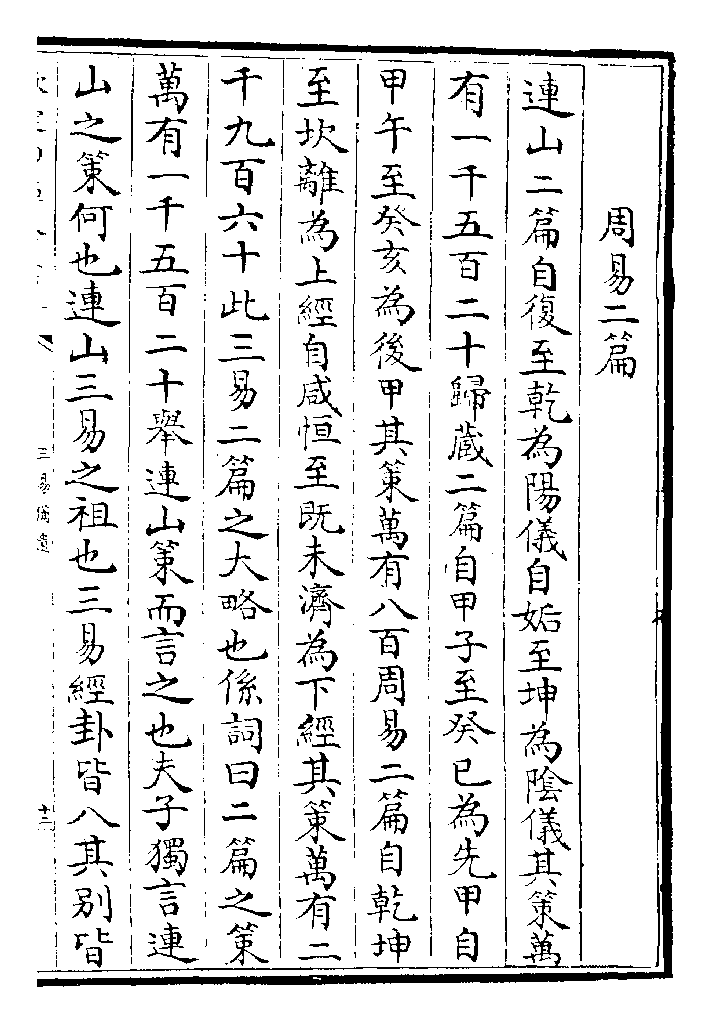 周易二篇
連山二篇自復至乾為陽儀自姤至坤為陰儀其策萬
有一千五百二十歸蔵二篇自甲子至癸巳為先甲自
甲午至癸亥為後甲其策萬有八百周易二篇自乾坤
至坎離為上經自咸恒至既未濟為下經其策萬有二
千九百六十此三易二篇之大略也係詞曰二篇之策
萬有一千五百二十舉連山策而言之也夫子獨言連
山之策何也連山三易之祖也三易經卦皆八其别皆
三易備遺
十三